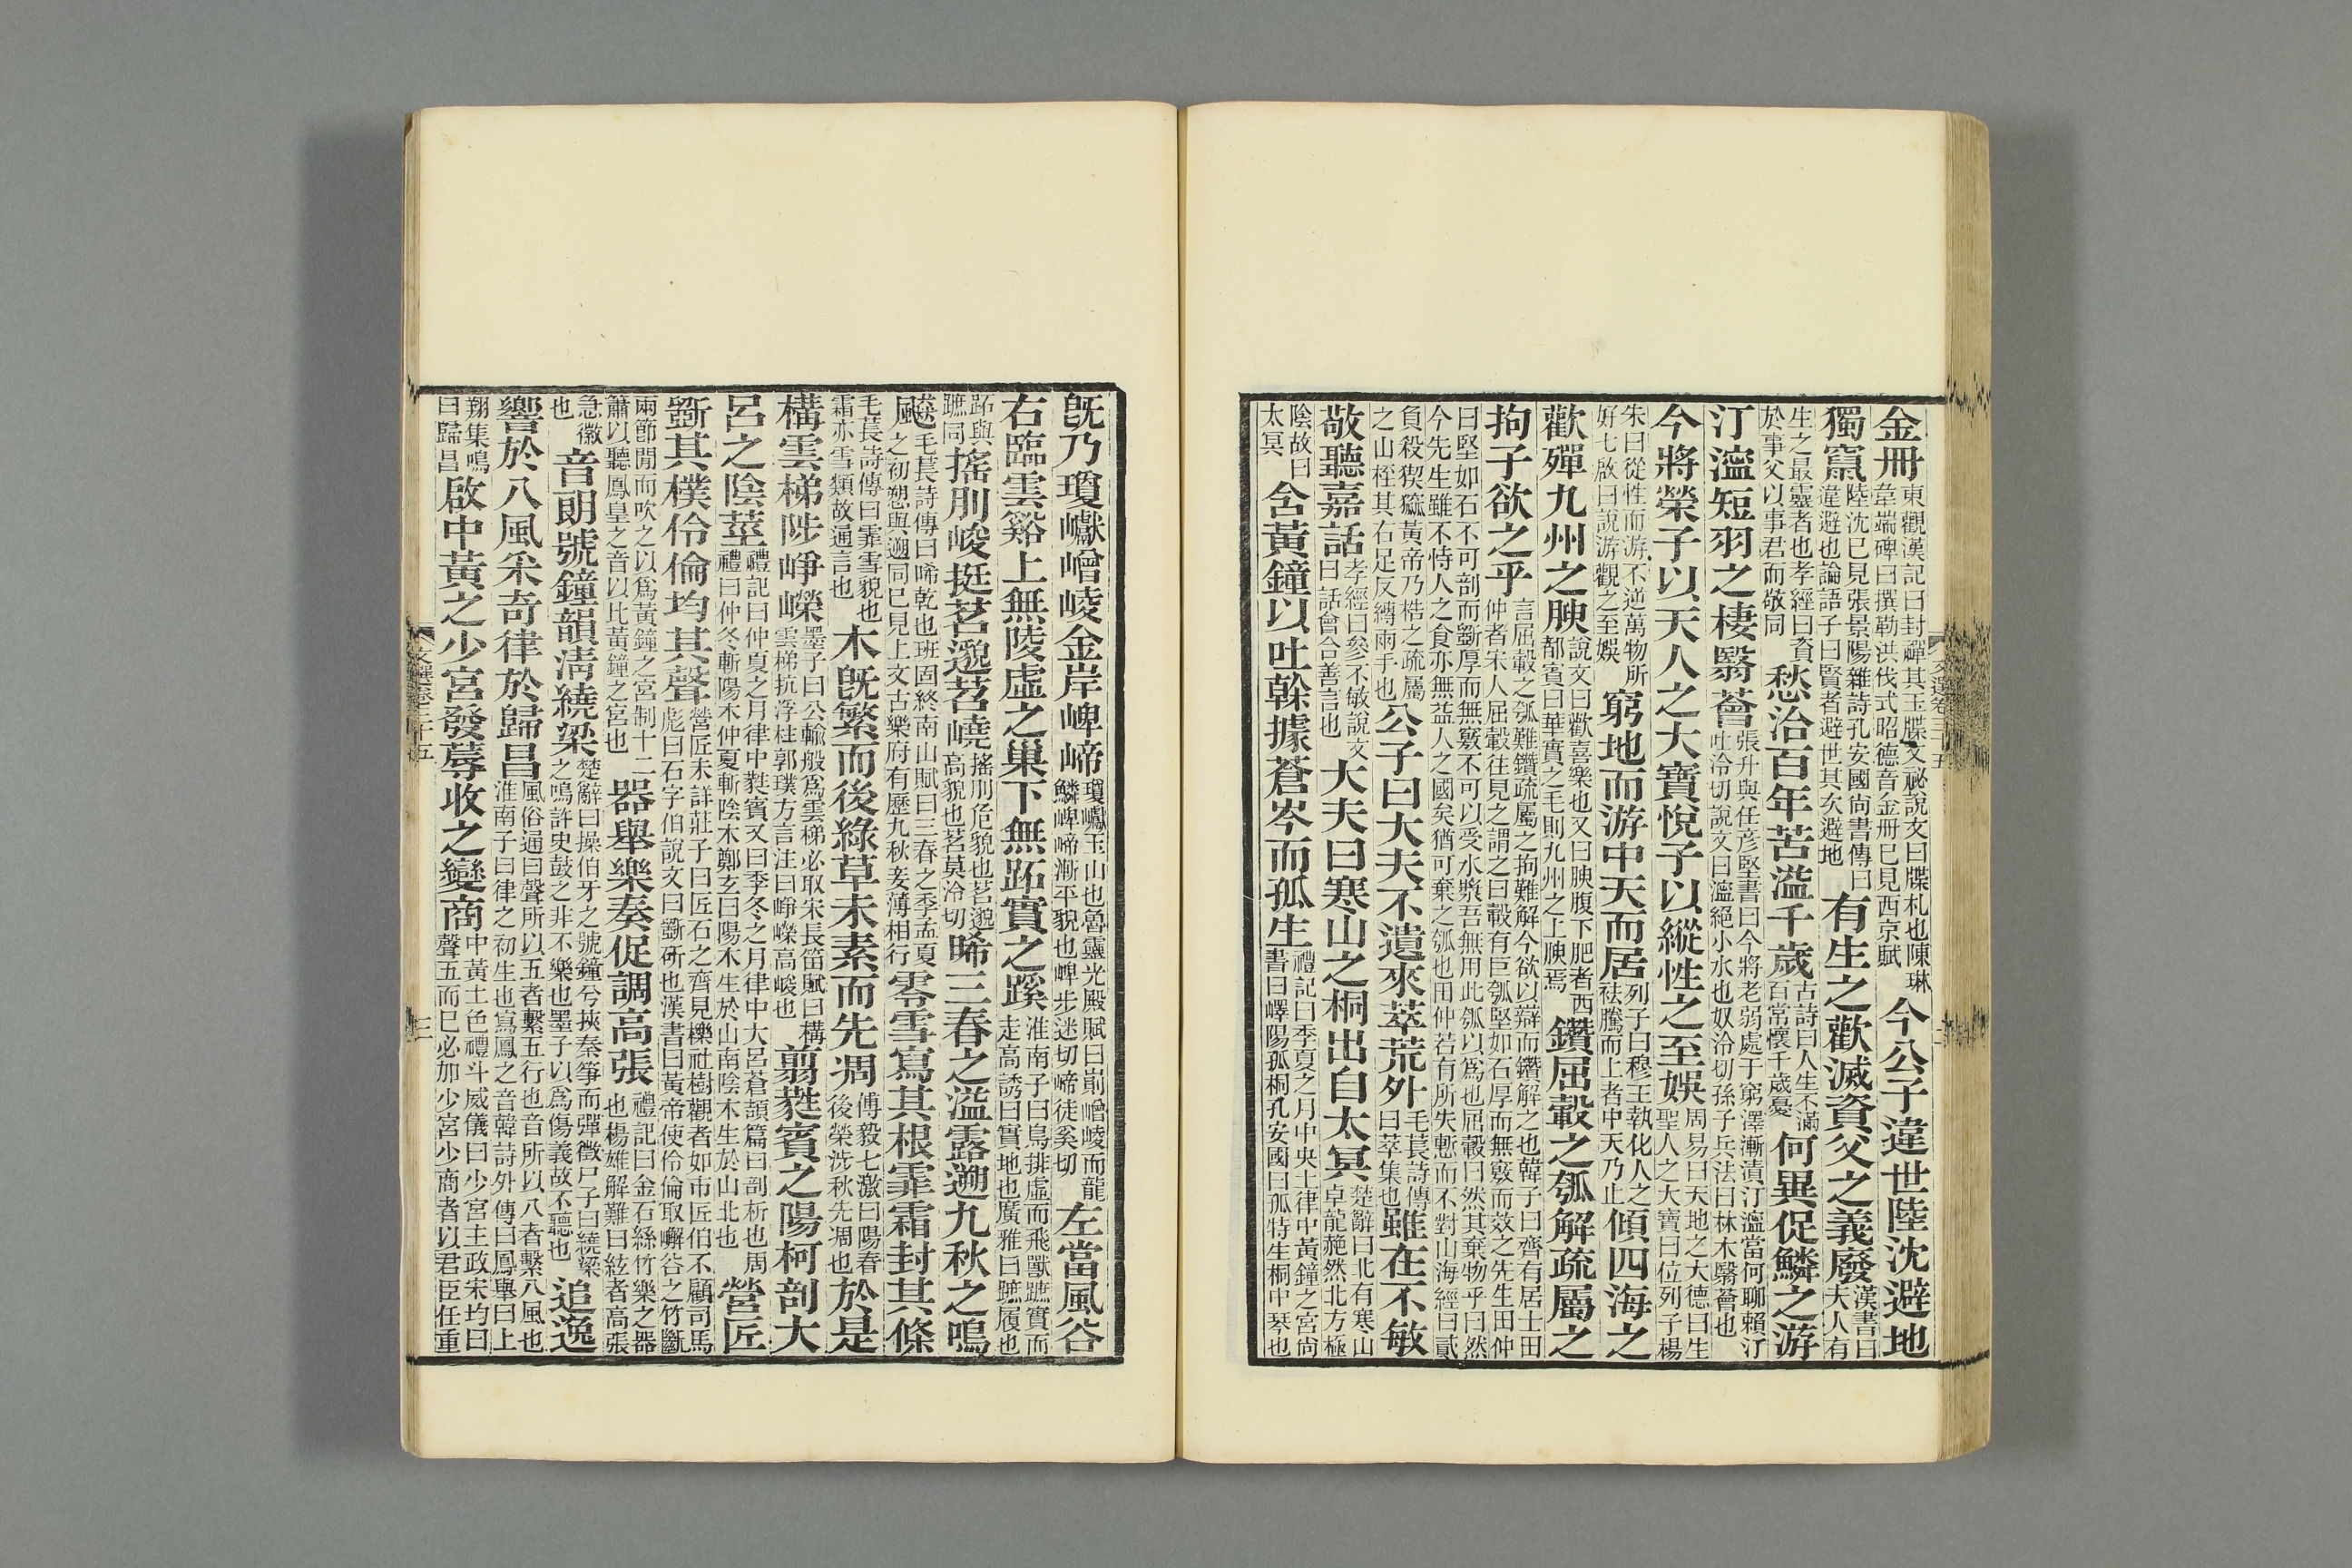 金冊東觀漢記曰封禪其玉牒文祕說文曰牒札也陳琳韋端碑曰撰勒洪伐式昭德音金冊巳見西京賦今公子違世陸沈避地
獨竄陸沈巳見張景陽雜詩孔安國尚書傳曰違避也論語子曰賢者避世其次避地有生之歡滅資父之義廢漢書曰夫人有
生之最靈者也孝經曰資於事父以事君而敬同愁洽百年苦溢千歲古詩曰人生不滿百常懷千歲憂何異促鱗之游
汀濘短羽之棲翳薈張升與任彥堅書曰今將老弱處于窮澤漸漬汀濘當何聊賴汀吐泠切說文曰濘絕小水也奴泠切孫子兵法曰林木翳薈也
今將榮子以天人之大寶悅子以縱性之至娛周易曰天地之大德曰生聖人之大寶曰位列子楊
朱曰從性而游不逆萬物所好七啟曰說游觀之至娛窮地而游中天而居列子曰穆王執化人之袪騰而上者中天乃止傾四海之
歡殫九州之腴說文曰歡喜樂也又曰腴腹下肥者西都賓曰華實之毛則九州之上腴焉鑽屈轂之瓠解疏屬之
拘子欲之乎言屈轂之瓠難鑽疏屬之拘難解今欲以辯而鑽解之也韓子曰齊有居士田仲者宋人屈轂往見之謂之曰轂有巨瓠堅如石厚而無竅而效之先生田仲
曰堅如石不可剖而斵厚而無竅不可以受水漿吾無用此瓠以爲也屈轂曰然其棄物乎曰然今先生雖不恃人之食亦無益人之國矣猶可棄之瓠也田仲若有所失慙而不對山海經曰貳
負役猰㺄黃帝乃梏之疏屬之山桎其右足反縛兩手也公子曰大夫不遺來萃荒外毛萇詩傳曰萃集也雖在不敏
敬聽嘉話孝經曰參不敏說文曰話會合善言也大夫曰寒山之桐出自太冥楚辭曰北有寒山卓龍赩然北方極
陰故曰太冥含黃鐘以吐榦據蒼岑而孤生禮記曰季夏之月中央土律中黃鐘之宮尚書曰嶧陽孤桐孔安國曰孤特生桐中琴也
旣乃瓊巘嶒崚金岸崥崹瓊巘玉山也魯靈光殿賦曰崱嶒崚而龍鱗崥崹漸平貌也崥步迷切崹徒奚切左當風谷
右臨雲谿上無陵虛之巢下無跖實之蹊淮南子曰鳥排虛而飛獸蹠實而走高誘曰實地也廣雅曰蹠履也
跖與蹠同搖刖峻挺茗邈苕嶢搖刖危貌也茗邈高貌也茗莫冷切晞三春之溢露遡九秋之鳴
飇毛萇詩傳曰晞乾也班固終南山賦曰三春之季孟夏之初愬與遡同巳見上文古樂府有歷九秋妾薄相行零雪寫其根霏霜封其條
毛萇詩傳曰霏雪貌也霜亦雪類故通言也木旣繁而後綠草未素而先凋傅毅七激曰陽春後榮涉秋先凋也於是
構雲梯陟崢嶸墨子曰公輸般爲雲梯必取宋長笛賦曰構雲梯抗浮柱郭璞方言注曰崢嶸高峻也翦蕤賓之陽柯剖大
呂之陰莖禮記曰仲夏之月律中蕤賓又曰季冬之月律中大呂蒼頡篇曰剖析也周禮曰仲冬斬陽木仲夏斬陰木鄭玄曰陽木生於山南陰木生於山北也營匠
斵其樸伶倫均其聲營匠未詳莊子曰匠石之齊見櫟社樹觀者如市匠伯不顧司馬彪曰石字伯說文曰斵斫也漢書曰黃帝使伶倫取嶰谷之竹斷
兩節閒而吹之以爲黃鐘之宮制十二簫以聽鳳皇之音以比黃鐘之宮也器舉樂奏促調高張禮記曰金石絲竹樂之器也楊雄解難曰絃者高張
急徽也音朗號鐘韻清繞梁楚辭曰操伯牙之號鐘兮挾秦箏而彈徵尸子曰繞梁之鳴許史鼓之非不樂也墨子以爲傷義故不聽也追逸
響於八風采奇律於歸昌風俗通曰聲所以五者繫五行也音所以八者繫八風也淮南子曰律之初生也寫鳳之音韓詩外傳曰鳳舉曰上
翔集鳴曰歸昌啟中黃之少宮發蓐收之變商中黃土色禮斗威儀曰少宮主政宋均曰聲五而巳必加少宮少商者以君臣任重
文選卷三十五
三